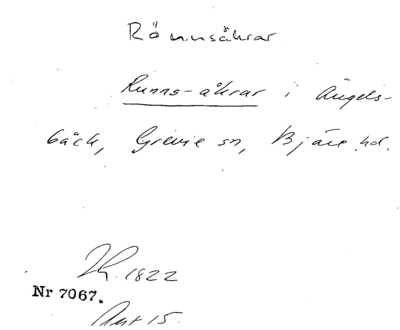 Rönnsåkrar
Runns-åkrar i Ängels-
bäck, Grevie sn, Bjäre hd.
1822
Nr 7067.
15.